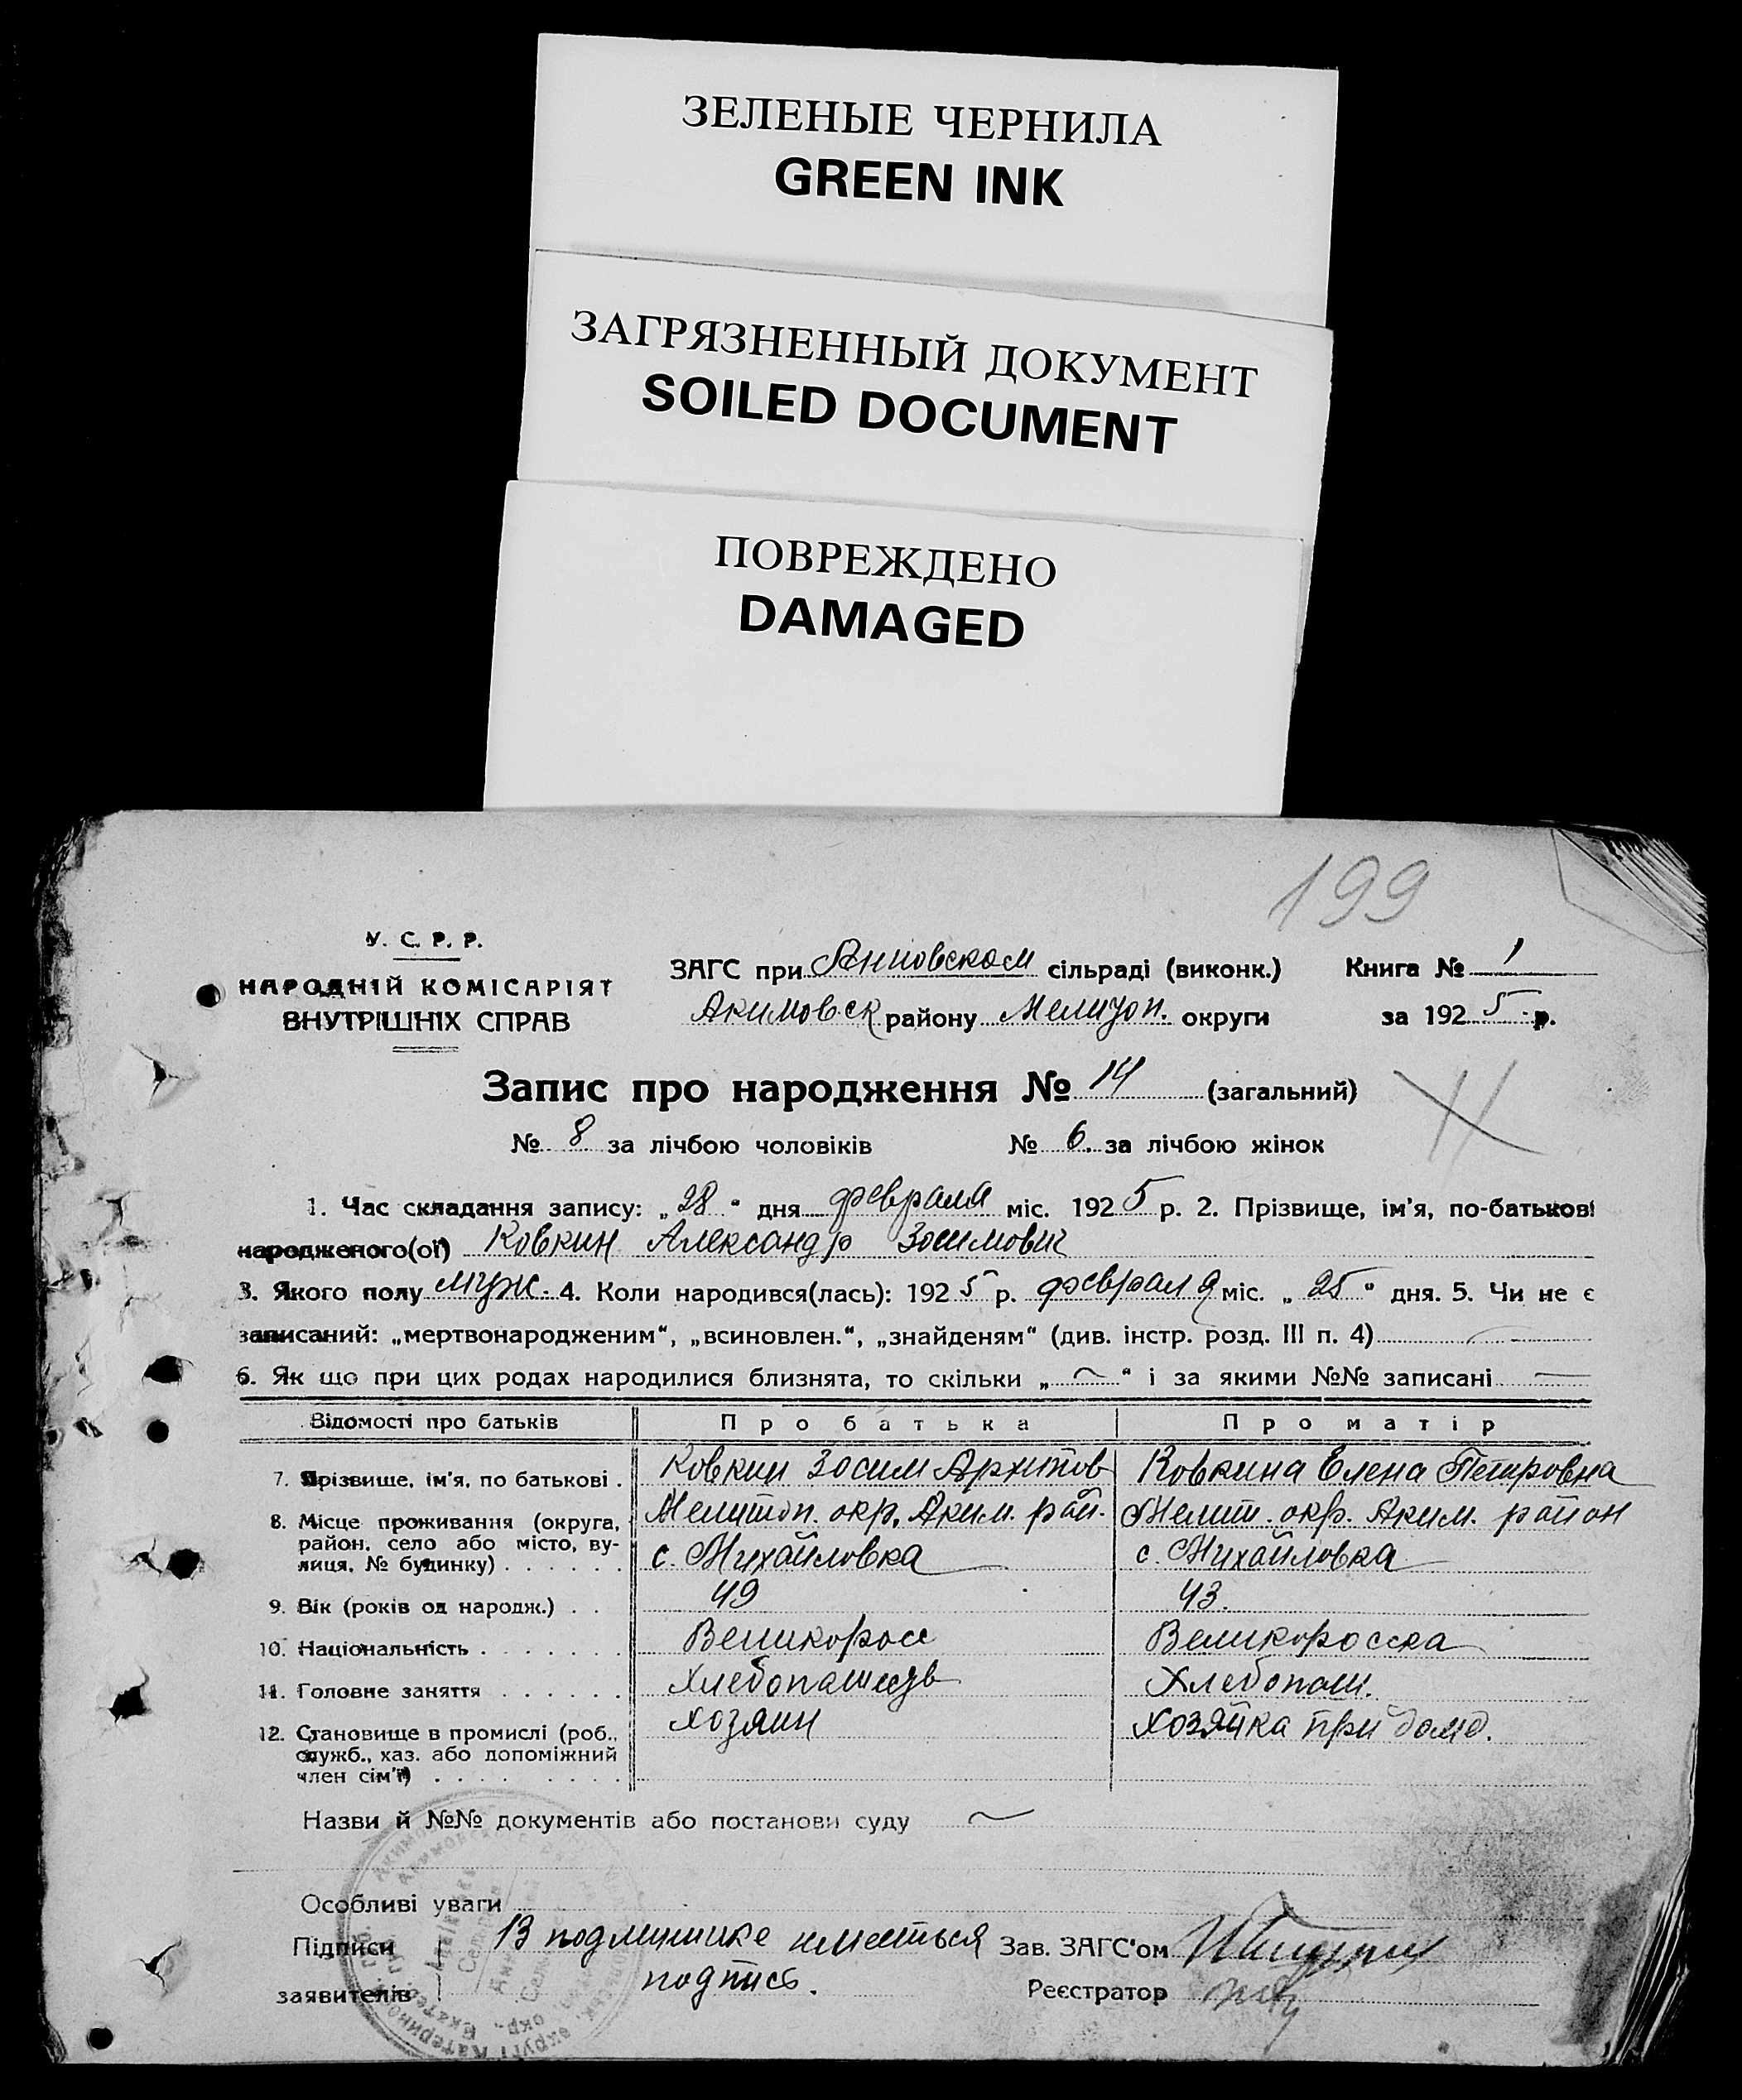 ЗЕЛЕНЫЕ ЧЕРНИЛА
GREEN INK
ЗАГРЯЗНЕННЫЙ ДОКУМЕНТ
SOILED DOCUMENT
ПОВРЕЖДЕНО
DAMAGED
199
У. С. Р. Р.
НАРОДНІЙ КОМІСАРІЯТ
ВНУТРІШНІХ СПРАВ
ЗАГС при Анновском сільраді (виконк.) Книга № 1
Акимовск району Мелитоп. округи за 1925 р.
Запис про народження № 14 (загальний)
№ 8 за лічбою чоловіків № 6. за лічбою жінок
1. Час складання запису: „28“ дня февраля міс. 1925 р. 2. Прізвище, ім'я, по-батькові
народженого(ої) Ковкин Александр Зосимович
3. Якого полу муж. 4. Коли народився(лась): 1925 р. февраля міс. „25“ дня. 5. Чи не є
записаний: „мертвонародженим“, „всиновлен.“, „знайденям“ (див. інстр. розд. III п. 4)
6. Як що при цих родах народилися близнята, то скільки „ “ і за якими №№ записані
Відомості про батьків Про батька Про матір
7. Прізвище, ім'я, по батькові . Ковкин Зосим Архипов Ковкина Елена Петровна
8. Місце проживання (округа, Мелитоп. окр. Аким. рай. Мелит. окр. Аким. район
район, село або місто, ву-
лиця, № будинку) . . . . . . с. Михайловка с. Михайловка
9. Вік (років од народж.) . . 49 43.
10. Національність . . . . . . . Великоросс Великоросска
11. Головне заняття . . . . . . Хлебопашець Хлебопаш.
12. Становище в промислі (роб., хозяин хозяйка при доме.
служб., хаз. або допоміжний
член сім'ї) . . . . . . . . .
Назви й №№ документів або постанови суду
Особливі уваги
Підписи В подлинике имеється Зав. ЗАГС'ом
заявителів подпись. Реєстратор